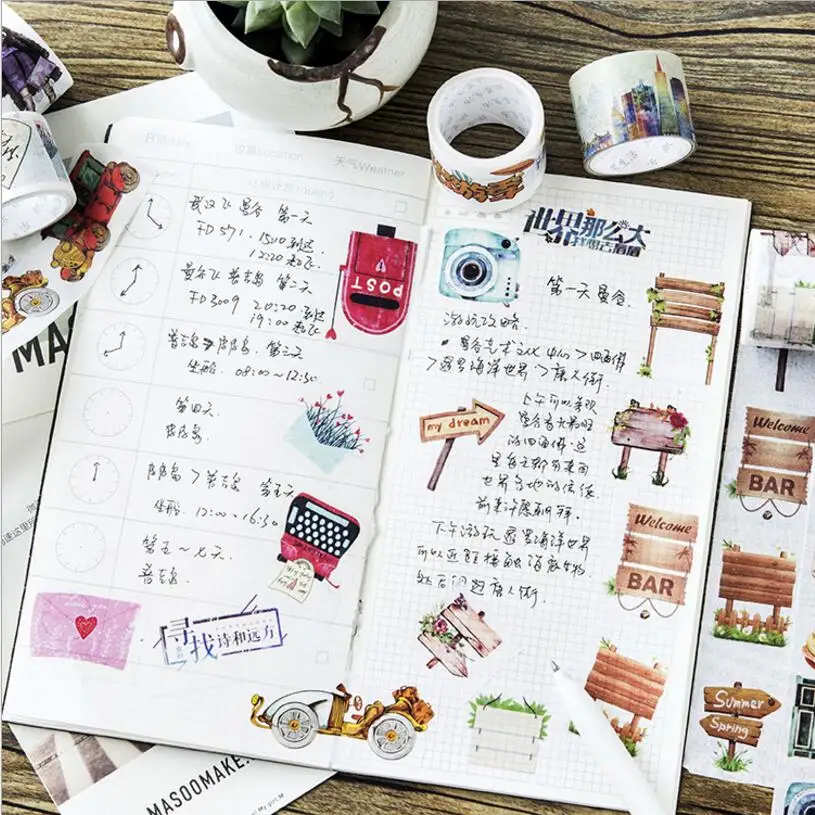 日期Date 位置Location 天气Weather
武汉飞曼谷 第一天
FD571. 15:10到达
12:20起飞
曼谷飞普吉岛 第二天
FD3009 20:20到达
19:00起飞
第三天
坐船 08:00~12:30
第四天
普吉岛 第五天
坐船 12:00~16:30
第五~七天
普吉岛
寻找诗和远方
POST
世界那么大
我想去看看
第一天曼谷
游玩攻略
曼谷艺术文化中心>四面佛
>暹罗海洋世界>唐人街
my dream
上午可以参观
曼谷
的四面佛 这
里每天都有来自
世界各地的信徒
前来许愿朝拜.
下午游玩暹罗海洋世界
可以近距接触海底生物
然后闲逛唐人街.
Welcome
BAR
Welcome
BAR
Summer
Spring
MASOOMAKE.
MAS